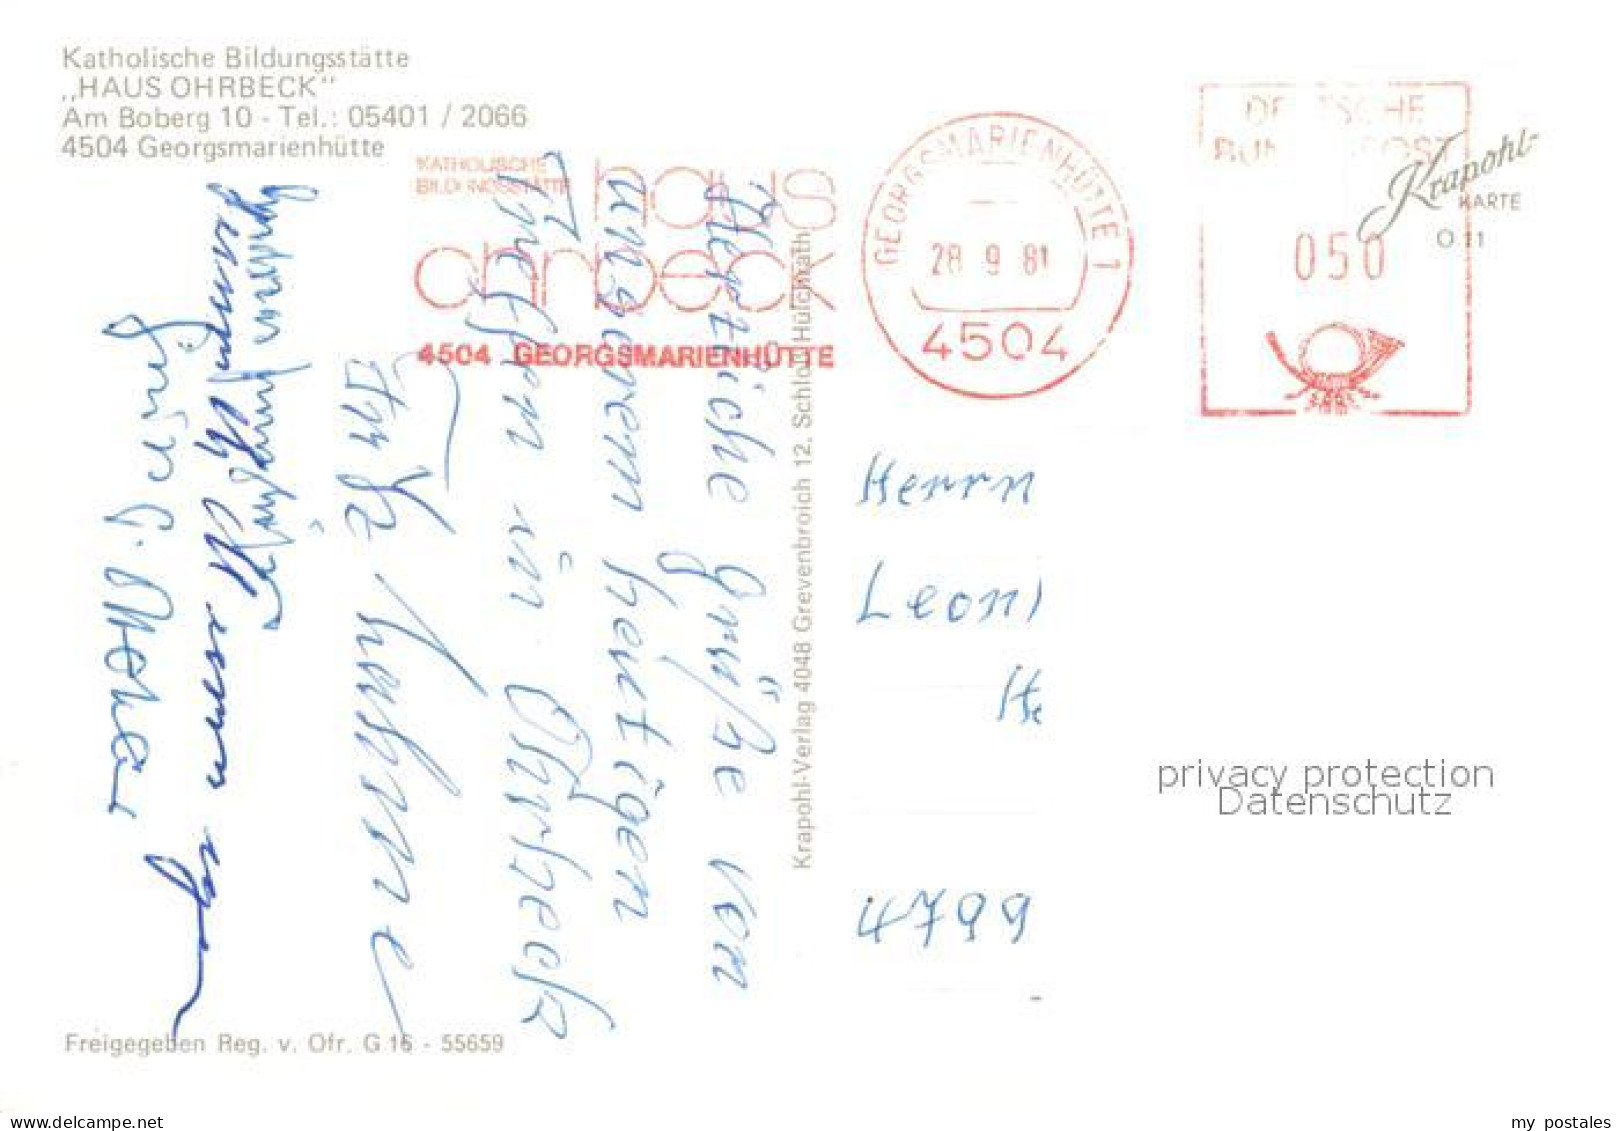 Katholische Bildungsstätte
„HAUS OHRBECK"
Am Boberg 10 - Tel.: 05401 / 2066
4504 Georgsmarienhütte
KATHOLISCHE
BILDUNGSSTÄTTE
haus
ohrbeck
4504 GEORGSMARIENHÜTTE
GEORGSMARIENHÜTTE 1
28 9 81
4504
DEUTSCHE
BUNDESPOST
050
Krapohl-
KARTE
O 11
Herzliche Grüße von
unserem heutigen
Treffen in Ohrbeck
Krapohl-Verlag 4048 Grevenbroich 12, Schloß Hülchrath
Herrn
Leon
He
4799
Freigegeben Reg. v. Ofr. G 16 - 55659
privacy protection
Datenschutz
delcampe.net
my_postales